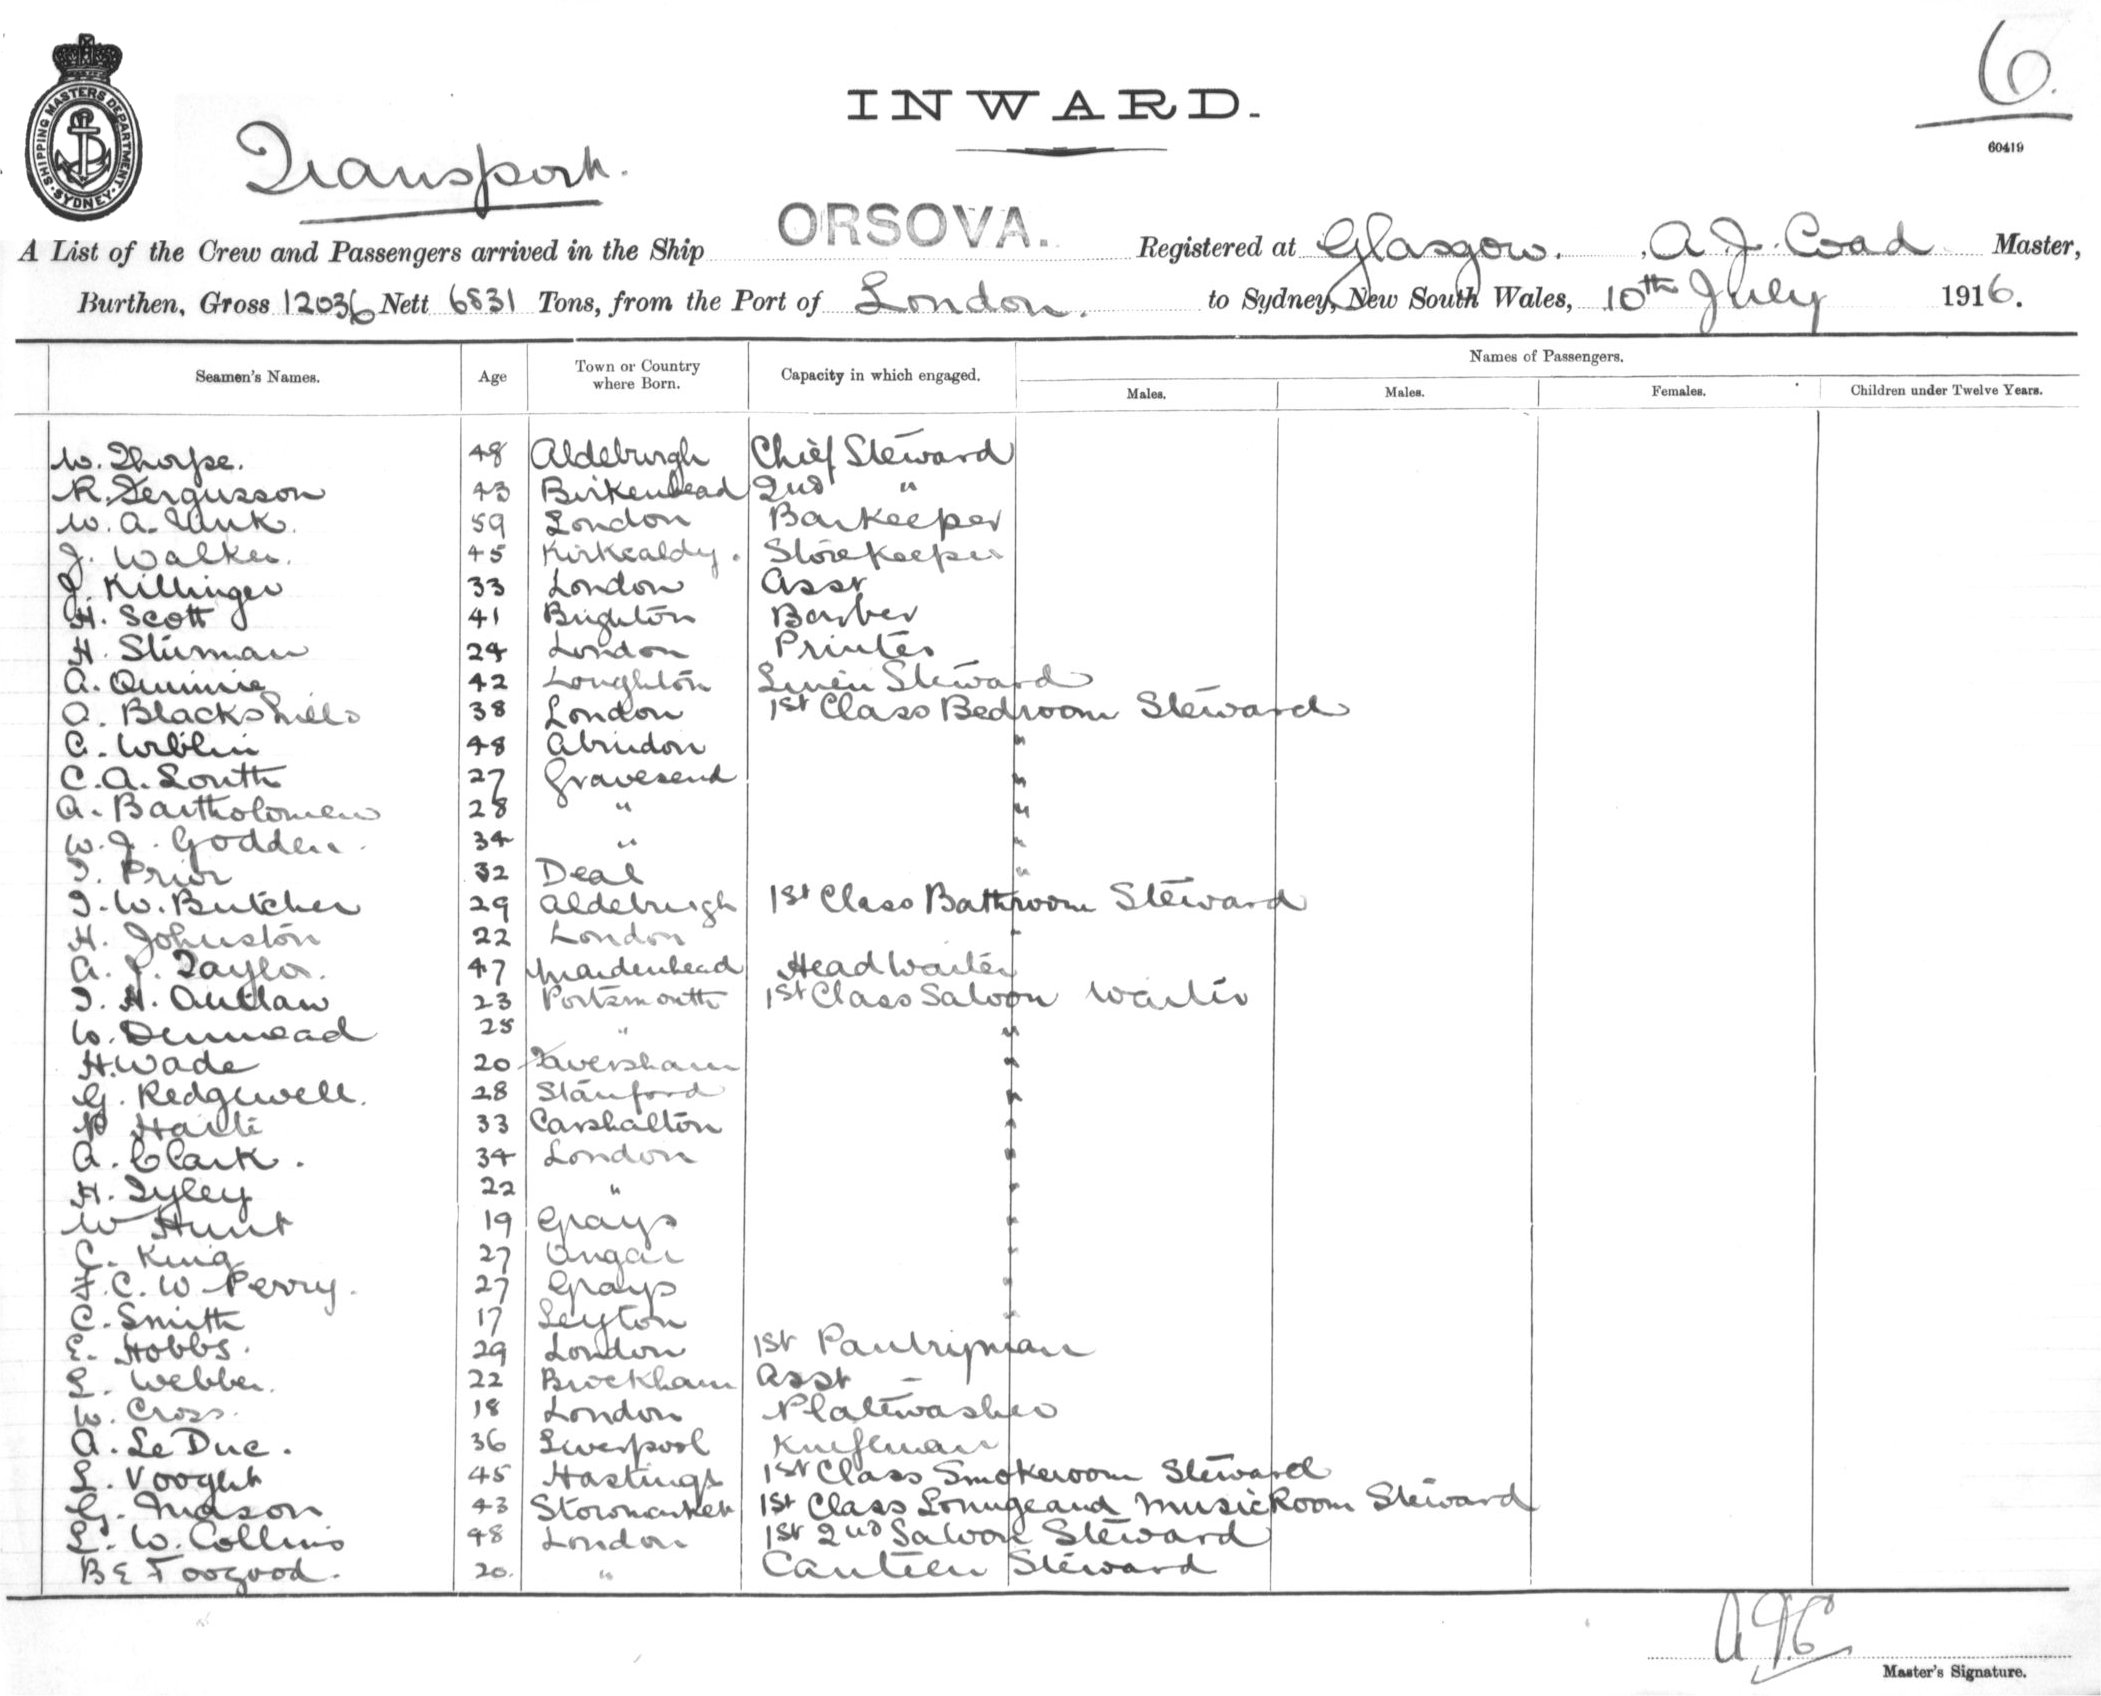 6.
INWARD.
60419
SHIPPING MASTERS DEPARTMENT. SYDNEY.
Transport.
A List of the Crew and Passengers arrived in the Ship ORSOVA. Registered at Glasgow. A. J. Coad Master,
Burthen, Gross 12036 Nett 6831 Tons, from the Port of London. to Sydney, New South Wales, 10th July 1916.
Seamen's Names. Age Town or Country where Born. Capacity in which engaged. Names of Passengers.
Males. Males. Females. Children under Twelve Years.
W. Thorpe. 48 Aldeburgh Chief Steward
R. Fergusson 43 Birkenhead 2nd "
W. A. 59 London Barkeeper
J. Walker. 45 Kirkcaldy. Storekeeper
J. Killinger 33 London Asst
H. Scott 41 Brighton Barber
H. Sturman 24 London Printer
A. 42 Loughton Linen Steward
A. Blackshields 38 London 1st Class Bedroom Steward
C. Weblin 48 Abindon "
C. A. South 27 Gravesend "
A. Bartholomew 28 " "
W. J. Godden. 34 " "
T. Prior 32 Deal "
T. W. Butcher 29 Aldeburgh 1st Class Bathroom Steward
H. Johnston 22 London "
A. J. Taylor. 47 Maidenhead Head Waiter
T. H. Outlaw 23 Portsmouth 1st Class Saloon Waiter
W. Denmead 25 " "
H. Wade 20 Faversham "
G. Redgwell. 28 Stanford "
33 Carshalton "
A. Clark. 34 London "
H. Tyley 22 " "
W Hunt 19 Grays "
C. King 27 Ongar "
F. C. W. Perry. 27 Grays "
C. Smith 17 Leyton "
E. Hobbs. 29 London 1st Pantryman
L. Webber. 22 Brockham Asst "
W. Cross. 18 London Platewasher
A. Le Duc. 36 Liverpool Knifeman
L. Vooght 45 Hastings 1st Class Smokeroom Steward
G. Mason 43 Stowmarket 1st Class Lounge and Music Room Steward
L. W. Collins 48 London 1st 2nd Saloon Steward
B E Toogood. 20. " Canteen Steward
AJC
Master's Signature.